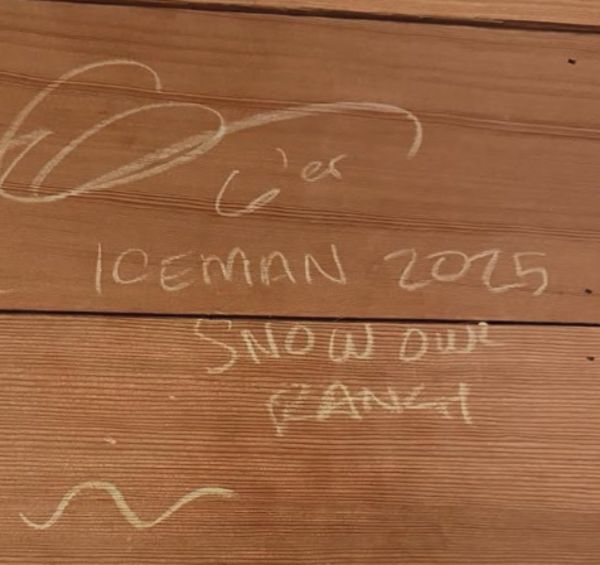 6'er
ICEMAN 2025
SNOW OWL
RANCH